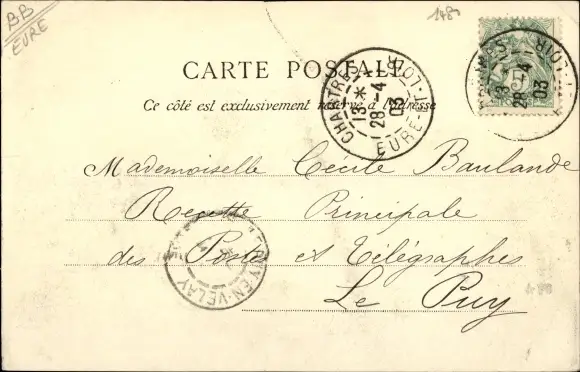 BB
EURE
1483
CARTE POSTALE
Ce côté est exclusivement réservé à l'adresse
CHARTRES
13 *
28 -4
03
EURE-ET-LOIR
13
28 -4
03
Mademoiselle Cécile Baulande
Recette Principale
des Poste et Télégraphes
Le Puy
LE PUY-EN-VELAY